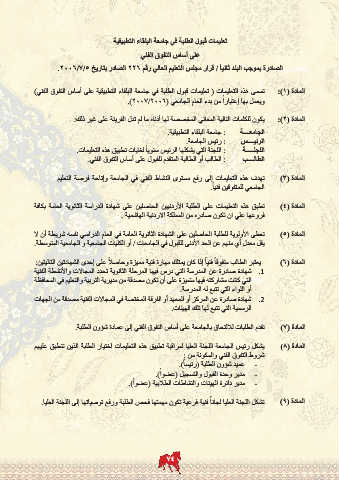 تعليمات قبول الطلبة في جامعة البلقاء التطبيقية
على أساس التفوق الفني
الصادرة بموجب البند ثانياً / قرار مجلس التعليم العالي رقم ٢٢٦ الصادر بتاريخ ٢٠٠٦/٧/٥.
المادة (١): تسمى هذه التعليمات ( تعليمات قبول الطلبة في جامعة البلقاء التطبيقية على أساس التفوق الفني)
ويعمل بها إعتباراً من بدء العام الجامعي (٢٠٠٧/٢٠٠٦).
المادة (٢): يكون للكلمات التالية المعاني المخصصة لها أدناه ما لم تدل القرينة على غير ذلك:
الجامعـــة : جامعة البلقاء التطبيقية.
الرئيـــس : رئيس الجامعة.
اللجنـــة : اللجنة التي يشكلها الرئيس سنوياً لغايات تطبيق هذه التعليمات.
الطالـــب : الطالب أو الطالبة المتقدم للقبول على أساس التفوق الفني.
المادة (٣) تهدف هذه التعليمات إلى رفع مستوى النشاط الفني في الجامعة وإتاحة فرصة التعليم
الجامعي للمتفوقين فنياً.
المادة (٤) تطبق هذه التعليمات على الطلبة الأردنيين الحاصلين على شهادة الدراسة الثانوية العامة بكافة
فروعها على ان تكون صادره من المملكة الاردنية الهاشمية .
المادة (٥) تعطى الأولوية للطلبة الحاصلين على الشهادة الثانوية العامة في العام الدراسي نفسه شريطة أن لا
يقل معدل أي منهم عن الحد الأدنى للقبول في الجامعات / أو الكليات الجامعية و الجامعية المتوسطة.
المادة (٦) يعتبر الطالب متفوقاً فنياً إذا كان يمتلك مهارة فنية مميزة وحاصلاً على إحدى الشهادتين التاليتين:
1. شهادة صادرة عن المدرسة التي درس فيها المرحلة الثانوية تحدد المجالات والأنشطة الفنية
التي كانت مشاركته فيها متميزة على أن تكون مصدقة من مديرية التربية والتعليم في المحافظة
أو اللواء التي تتبع له المدرسة.
2. شهادة صادرة عن المركز أو المعهد أو الفرقة المختصة في المجالات الفنية مصدقة من الجهات
الرسمية التي تتبع لها تلك الهيئات.
المادة (٧) تقدم الطلبات للالتحاق بالجامعة على أساس التفوق الفني إلى عمادة شؤون الطلبة.
المادة (٨) يشكل رئيس الجامعة اللجنة العليا لمراقبة تطبيق هذه التعليمات لاختيار الطلبة الذين تنطبق عليهم
شروط التفوق الفني والمكونة من :
- عميد شؤون الطلبة (رئيساً).
- مدير وحدة القبول والتسجيل (عضواً).
- مدير دائرة الهيئات والنشاطات الطلابية (عضواً).
المادة (٩) تشكل اللجنة العليا لجاناً فنية فرعية تكون مهمتها فحص الطلبة ورفع توصياتها إلى اللجنة العليا.